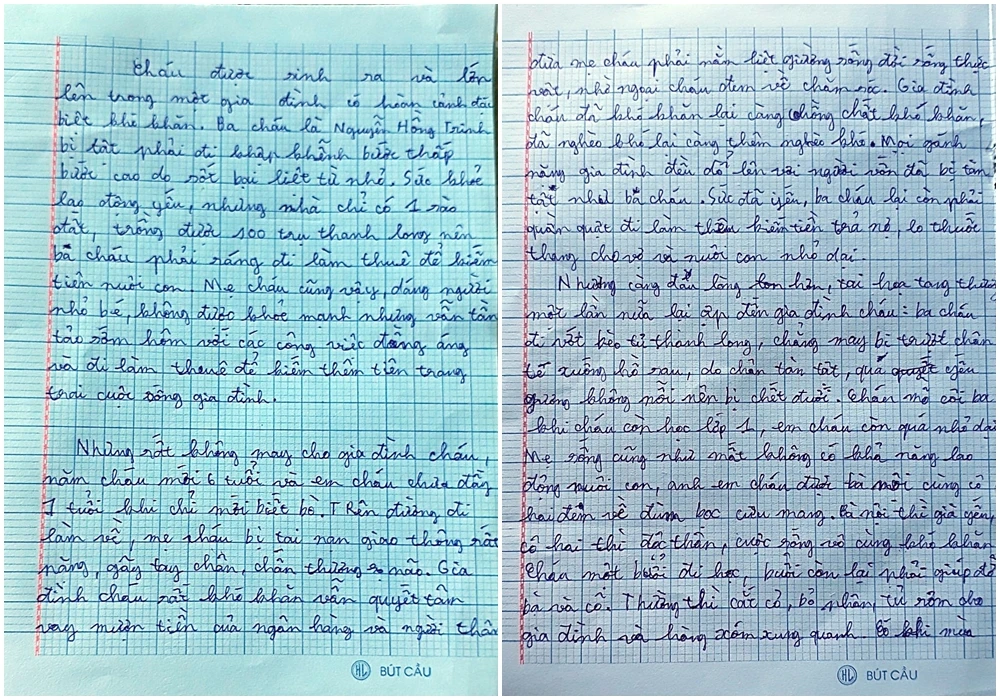 Cháu được sinh ra và lớn
lên trong một gia đình có hoàn cảnh đặc
biệt khó khăn. Ba cháu là Nguyễn Hồng Trinh
bị tật phải đi khập khễnh bước thấp
bước cao do sốt bại liệt từ nhỏ. Sức khỏe
lao động yếu, nhưng nhà chỉ có 1 sào
đất, trồng được 100 trụ thanh long nên
bà cháu phải ráng đi làm thuê để kiếm
tiền nuôi con. Mẹ cháu cũng vậy, dáng người
nhỏ bé, không được khỏe mạnh nhưng vẫn tần
tảo sớm hôm với các công việc đồng áng
và đi làm thuê để kiếm thêm tiền trang
trải cuộc sống gia đình.
Nhưng rất không may cho gia đình cháu,
năm cháu mới 6 tuổi và em cháu chưa đầy
1 tuổi khi chỉ mới biết bò. TRên đường đi
làm về, mẹ cháu bị tai nạn giao thông rất
nặng, gãy tay chân, chấn thương não. Gia
đình cháu rất khó khăn vẫn quyết tâm
vay mượn tiền của ngân hàng và người thân
BÚT CẦU
đưa mẹ cháu phải nằm liệt giường sống đời sống thực
vật, nhờ ngoại cháu đem về chăm sóc. Gia đình
cháu đã khó khăn lại càng chồng chất khó khăn,
đã nghèo khó lại càng thêm nghèo khó. Mọi gánh
nặng gia đình đều đổ lên vai người vốn đã bị tàn
tật như bà cháu. Sức đã yếu, ba cháu lại còn phải
quần quật đi làm thêm kiếm tiền trả nợ, lo thuốc
thang cho vợ và nuôi con nhỏ dại.
Nhưng càng đau lòng hơn, tai họa tang thương
một lần nữa lại ập đến gia đình cháu: ba cháu
đi vớt bèo tủ thanh long, chẳng may bị trượt chân
té xuống hồ sau, do chân tàn tật, quá yếu
gượng không nổi nên bị chết đuối. Cháu mồ côi ba
khi cháu còn học lớp 1, em cháu còn quá nhỏ dại
Mẹ sống cũng như mất không có khả năng lao
động nuôi con, anh em cháu được bà nội cùng cô
hai đem về đùm bọc cưu mang. Bà nội thì già yếu,
cô hai thì độc thân, cuộc sống vô cùng khó khăn
Cháu một buổi đi học, buổi còn lại phải giúp đỡ
bà và cô. Thường thì cắt cỏ, bỏ phân, tủ rơm cho
gia đình và hàng xóm xung quanh. Có khi mùa
HL BÚT CẦU